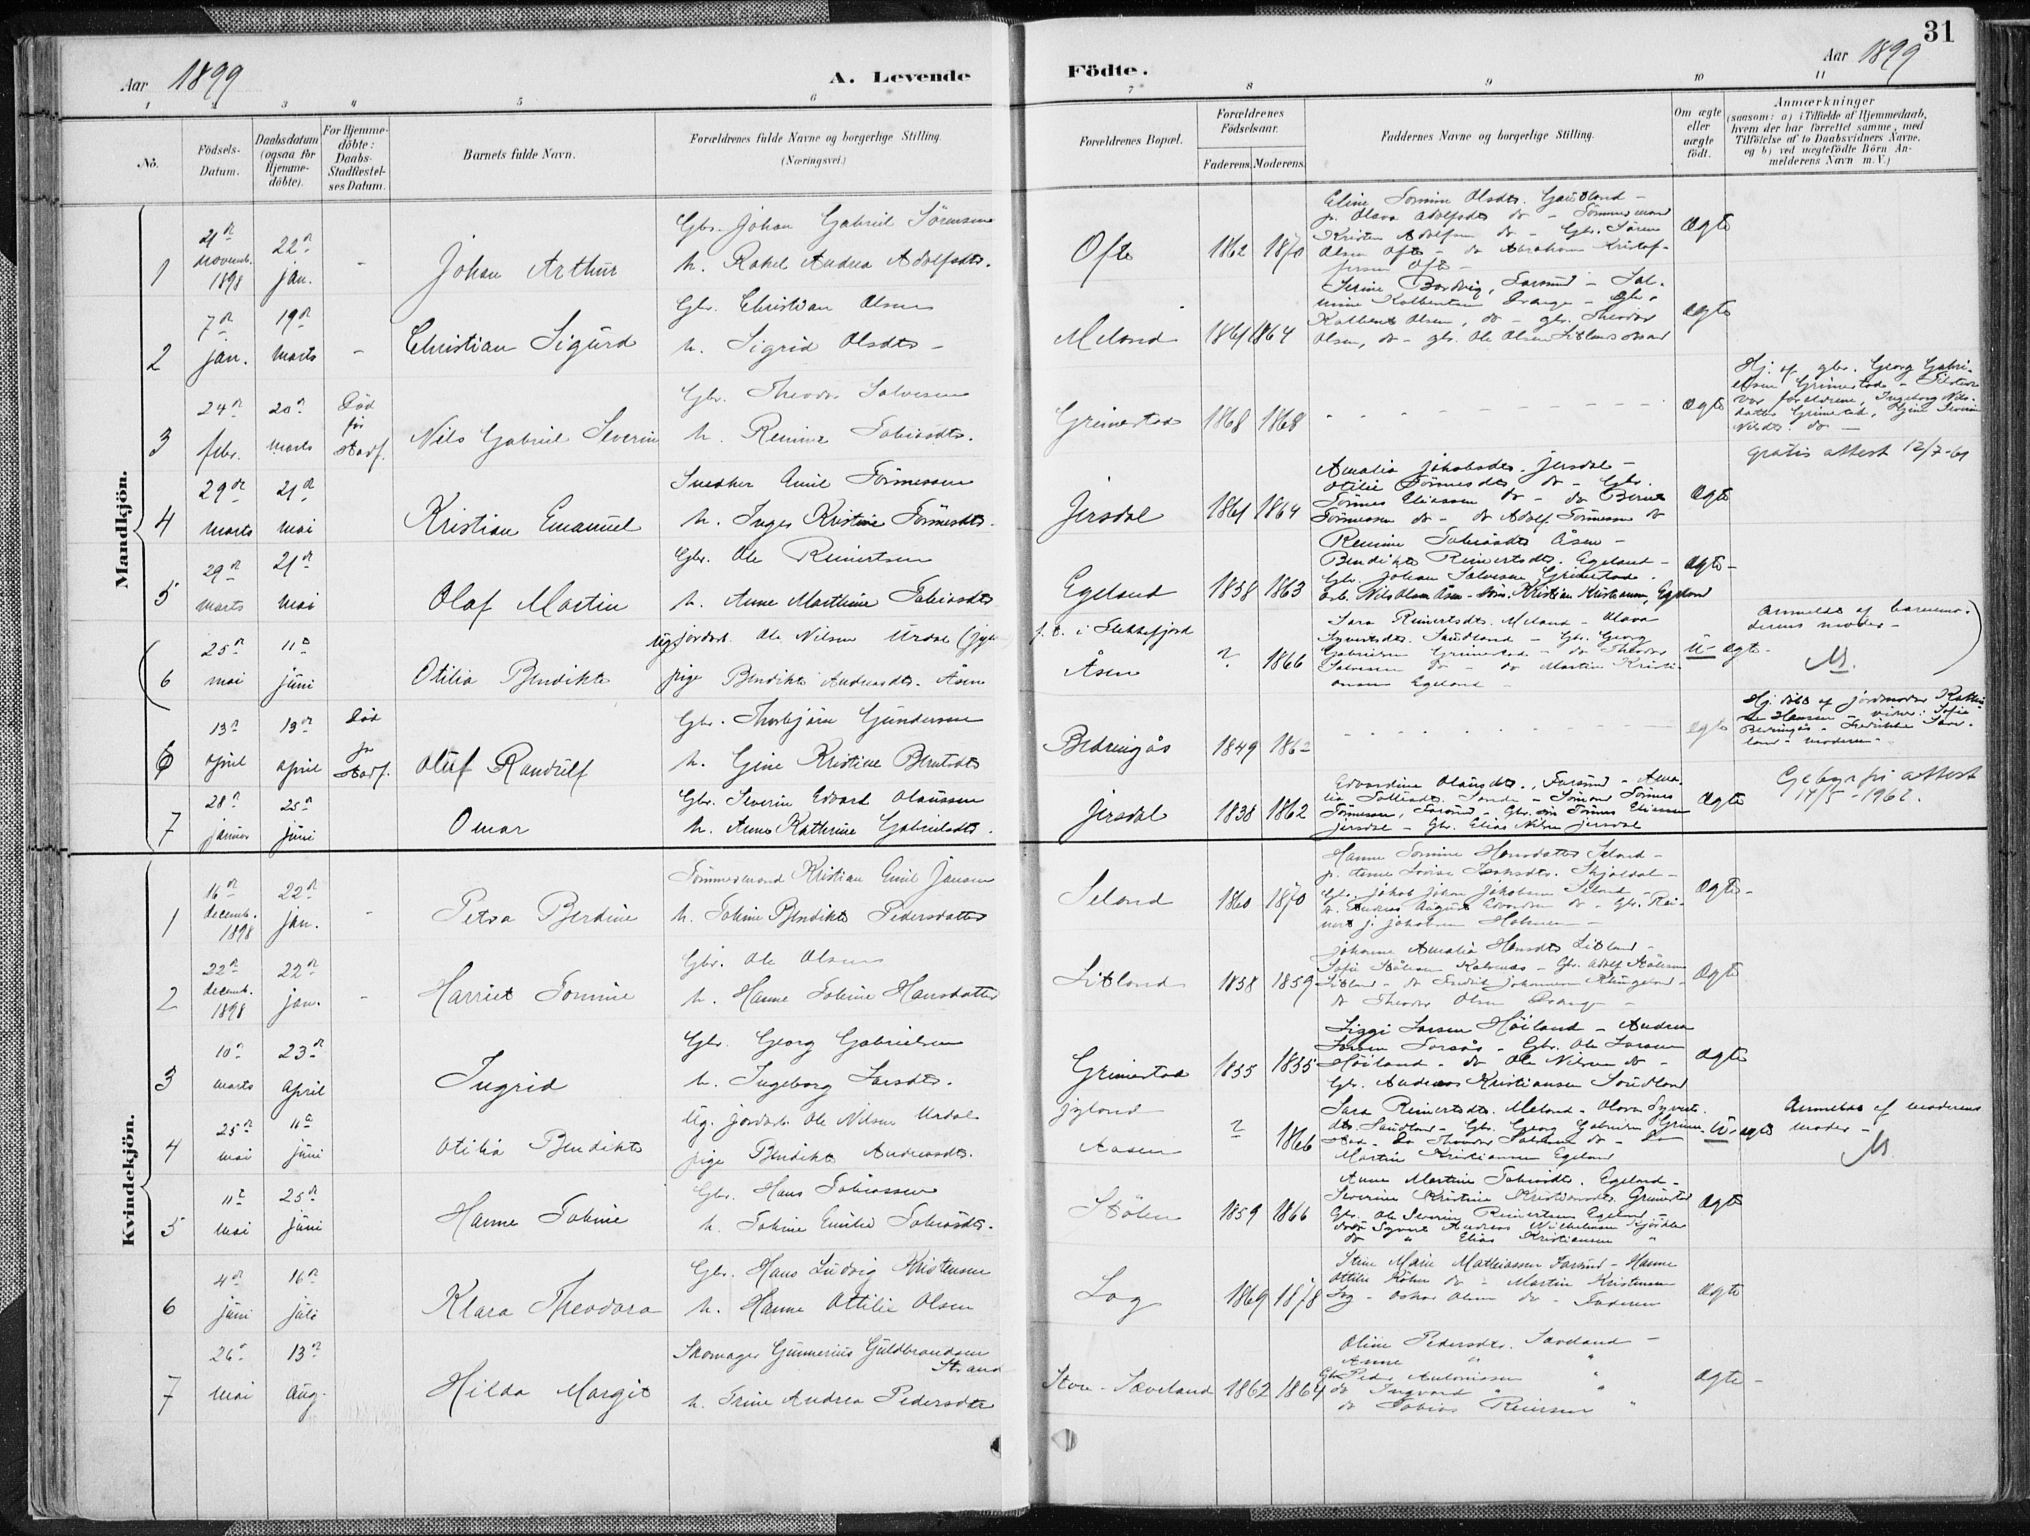 31
Aar 1899
A. Levende
Födte.
Aar 1899
1 2 3 4 5 6 7 8 9 10 11
No.
Födsels-
Datum.
Daabsdatum
(ogsaa for
Hjemme-
döbte).
For Hjemme-
döbte:
Daabs-
Stadfæstel-
ses Datum.
Barnets fulde Navn.
Forældrenes fulde Navne og borgerlige Stilling.
(Næringsvei.)
Forældrenes Bopæl.
Forældrenes
Födselsaar.
Faderens. Moderens.
Faddernes Navne og borgerlige Stilling.
Om ægte
eller
uægte
født.
Anmærkninger
(saasom: a) i Tilfælde af Hjemmedaab,
hvem der har forrettet samme, med
Tilföielse af to Daabsvidners Navne,
og b) ved uægtefödte Börn An-
melderens Navn m. V.)
Mandkjön.
1
21de
novemb.
1898
22de
jan.
-
Johan Arthur
Gbr. Johan Gabriel Sörensen
h. Rakel Andrea Adolfsdtr.
Ofte
1862 1870
Eline Tomine Olsdtr. Gaudland -
p. Olava Adolfsdtr do - Tömmermand
Kristen Adolfsen do - Gbr. Sören
Olsen Ofte - do Abraham Kristof-
fersen Ofte -
Ægte
2
7de
jan.
19de
marts
-
Christian Sigurd
Gbr. Christian Olsen
h. Sigrid Olsdtr -
Meland
1861 1864
Serine Bordvig, Farsund -
Kolbentsen Drange - Gbr.
Kolbent Olsen, do - gbr. Theodor
Olsen, do - gbr. Ole Olsen
Ægte
3
24de
febr.
20de
marts
Död
för
stadf.
Nils Gabriel Severin
Gbr. Theodor Salvesen
h. Remine Tobiasdtr.
Grimestad
1868 1868
- - - - - - - - -
Ægte
Hj. af gbr. Georg Gabri-
elsen Grimestad - Tilstede
var forældrene, Ingeborg Nils-
datter Grimestad,
Nilsdtr. do -
gratis attest 12/7-61
4
29de
marts
21de
mai
Kristian Emanuel
Snedker Emil Tönnessen
h. Inger Kristine Tönnesdtr.
Jersdal
1861 1864
Amalia Jakobsdtr. Jersdal -
Otilie Tönnesdtr do - Gbr.
Tönnes Eliassen do - do Bernt
Tönnessen do - do Adolf Tönnessen do
Ægte
5
29de
marts
21de
mai
Olaf Martin
Gbr. Ole Reinertsen
h. Anne Marthine Tobiasdtr
Egeland
1858 1863
Remine Tobiasdtr Åsen -
Bendikte Reinertsdtr. Egeland -
Gbr. Johan Salvesen Grimestad.
Arb. Nils Olsen Åsen - Kristian Kristiansen, Egeland
Ægte -
6
25de
mai
11te
juni
Otilia Bendikte
Ug. jordarb. Ole Nilsen Urdal
pige Bendikte Andreasdtr. Åsen
f. t. i Flekkefjord
Åsen
? 1866
Sara Reinertsdtr. Meland - Olava
Syvertsdtr. Saudland - Gbr. Georg
Gabrielsen Grimestad - do Theodor
Salvesen do - do Martin Kristi-
ansen Egeland -
U-ægte -
Anmeldt af barnemo-
derens moder -
M.
6
13de
april
13de
april
Död
för
stadf.
Oluf Randulf
Gbr. Thorbjörn Gundersen
h. Gine Kristine Berntsdtr
Bedringås
1849 1862
- - - - - - -
Ægte
Hj. döbt af jordmoder Kathri-
ne Hansen - vidner: Sofie
Bedringås - Fredrikke
moderen -
Gebyrfri attest
14/5 - 1962.
7
28de
januar
25de
juni
Omar
Gbr. Severin Edvard Olaussen
h. Anne Kathrine Gabrielsdtr.
Jersdal
1838 1862
Edvardine Olausdtr., Farsund - Ama-
lia Tollisdtr. Sande - Sömand Tönnes
Tönnessen, Farsund - Gbr. Tönnes Eliassen
Jersdal - Gbr. Elias Nilsen Jersdal
Ægte
Kvindekjön.
1
16de
decemb.
1898
22de
jan.
-
Petra Berdine
Tömmermand Kristian Emil Jansen
h. Tobine Bendikte Pedersdatter
Seland
1860 1870
Hanne Tomine Hansdatter Seland -
p. Anne Lovise Skjoldal -
Gbr. Jakob Johan Jakobsen Seland -
do. Andreas August Edvardsen do - Gbr. Rei-
nert J. Jakobsen
Ægte -
2
22de
decemb.
1898
22de
jan.
-
Harriet Tomine
Gbr. Ole Olsen
h. Hanne Tobine Hansdatter
Litland
1858 1859
Johanne Amalia Hansdtr Litland -
Sofie Stölen - Gbr. Adolf
Litland - do Fredrik Johannesen
do Theodor Olsen Drange -
Ægte
3
10de
marts
23de
april
Ingrid
Gbr. Georg Gabrielsen
h. Ingeborg Larsdtr.
Grimestad
1855 1855
Siggi Larsen Höiland - Andrea
Larsen - Gbr. Ole Larsen
Höiland - do Ole Nilsen do -
Gbr. Andreas Kristiansen Saudland
Ægte
4
25de
mai
11te
juni
Otilia Bendikte
Ug. jordarb. Ole Nilsen Urdal
pige Bendikte Andreasdtr.
Jyland
Aasen
? 1866
Sara Reinertsdtr. Meland - Olava Syverts-
dtr. Saudland - Gbr. Georg Gabrielsen Grime-
stad - do Theodor Salvesen do - do
Martin Kristiansen Egeland
U-ægte
Anmeldt af moderens
moder -
M.
5
11te
mai
25de
juni
Hanne Tobine
Gbr. Hans Tobiassen
h. Tobine Emilie Tobiasdtr.
Stölen
1859 1866
Anne Martine Tobiasdtr. Egeland -
Severine Kristine Kristiansdtr. Grimestad
Gbr. Ole Severin Reinertsen Egeland -
do Syvert Andreas Wilhelmsen
do " Elias Kristiansen "
Ægte
6
4de
juni
16de
juli
Klara Theodora
Gbr. Hans Ludvig Kristensen
h. Hanne Ottilie Olsen
Log
1869 1878
Stine Marie Mathiassen Farsund - Hanne
Ottilie do - Martin Kristensen
Log - Oskar Olsen do - Faderen
Ægte
7
26de
mai
13de
aug.
Hilda Margit
Skomager Gunnerius Guldbrandsen
Strand
h. Trine Andrea Pedersdtr
Store-Sæveland
1862 1864
Oline Pedersdtr. Sæveland -
Anne " "
Gbr. Peder Antonissen "
do Ingvard " "
do Tobias Reiersen "
Ægte -